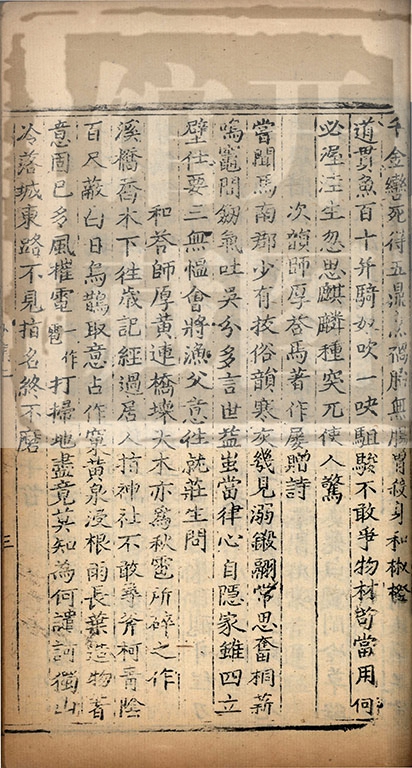 千金臠死得五鼎烹禍胎無腸胃殺身和椒橙
道貫魚百十并騎如吹一吷駔駿不敢爭物材苟當用何
必渥洼生忽思麒麟種突兀使人驚
次韻師厚荅馬著作屢贈詩
嘗聞馬南郡少有拔俗韻寒灰幾見溺鎩翮常思奮桐薪
鳴竈間劒氣吐吳分多言世益蚩當律心自隱家雖四立
壁仕要三無慍會將漁父意往就莊生問
和荅師厚黃連橋壞大木亦爲秋雹所碎之作
溪橋喬木下往歳記經過居人指神社不敢尋斧柯青陰
百尺蔽白日烏鵲取意占作窠黃泉浸根雨長葉造物著
意固已多風摧電一作雹打掃地盡竟莫知為何譴訶獨山
冷落城東路不見指名終不磨
三